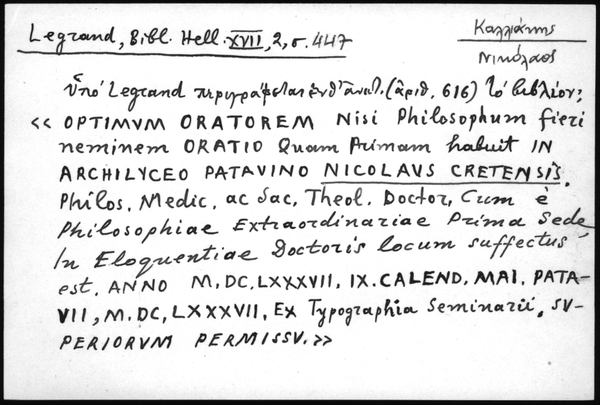 Legrand, Bibl. Hell. XVII, 2, σ. 447
Καλλιάκης
Νικόλαος
Ὑπό Legrand περιγράφεται ἐνθ' ἀνωτ. (ἀριθ. 616) τό βιβλίον:
« OPTIMVM ORATOREM Nisi Philosophum fieri
neminem ORATIO Quam Primam habuit IN
ARCHILYCEO PATAVINO NICOLAVS CRETENSIS.
Philos. Medic. ac Sac. Theol. Doctor, Cum è
Philosophiae Extraordinariae Prima Sede
In Eloquentiae Doctoris locum suffectus
est. ANNO M.DC.LXXXVII, IX. CALEND. MAI. PATA-
VII, M.DC.LXXXVII, Ex Typographia Seminarii. SV-
PERIORVM PERMISSV.»